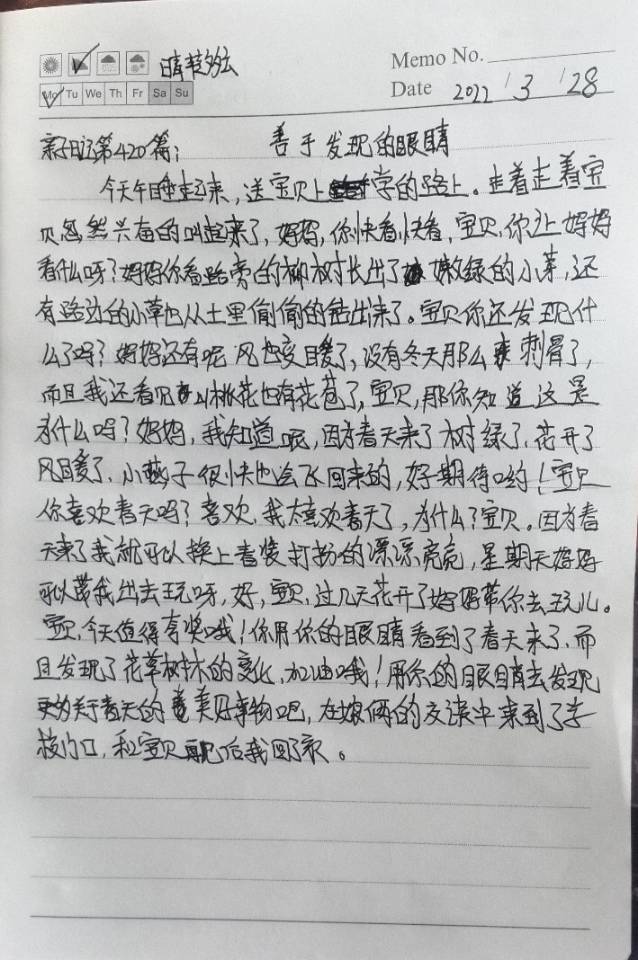 晴转多云
Memo No.
Mo Tu We Th Fr Sa Su
Date 2022/3/28
亲子日记第420篇: 善于发现的眼睛
今天午睡起来,送宝贝上学的路上。走着走着宝
贝忽然兴奋的叫起来了,妈妈,你快看快看,宝贝,你让妈妈
看什么呀?妈妈你看路旁的柳树长出了嫩绿的小芽,还
有路边的小草也从土里偷偷的钻出来了。宝贝你还发现什
么了吗?妈妈还有呢风也变暖了,没有冬天那么刺骨了,
而且我还看见桃花也有花苞了,宝贝,那你知道这是
为什么吗?妈妈,我知道呢,因为春天来了树绿了,花开了
风暖了,小燕子很快也会飞回来的,好期待哟!宝贝
你喜欢春天吗?喜欢,我太喜欢春天了,为什么?宝贝。因为春
天来了我就可以换上春装打扮的漂漂亮亮,星期天妈妈
可以带我出去玩呀,好,宝贝,过几天花开了妈妈带你去玩儿。
宝贝,今天值得夸奖哦!你用你的眼睛看到了春天来了,而
且发现了花草树木的变化,加油哦!用你的眼睛去发现
更多关于春天的美好事物吧,在娘俩的交谈中来到了学
校门口,和宝贝再见后我回了家。